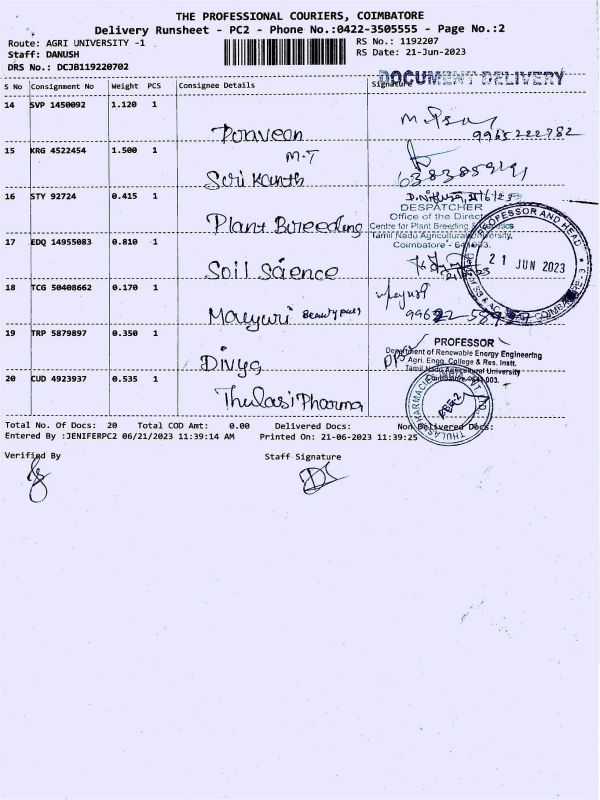 THE PROFESSIONAL COURIERS, COIMBATORE
Delivery Runsheet - PC2 - Phone No.:0422-3505555 - Page No.:2
Route: AGRI UNIVERSITY -1
RS No.: 1192207
Staff: DANUSH
RS Date: 21-Jun-2023
DRS No.: DCJB119220702
DOCUMENT DELIVERY
S No Consignment No Weight PCS Consignee Details Signature
14 SVP 1450092 1.120 1
Poraveen
9965222782
15 KRG 4522454 1.500 1
M.T
Sori Kanth
16 STY 92724 0.415 1
Plant Breeding
DESPATCHER
Office of the Director
Centre for Plant Breeding & Genetics
Tamil Nadu Agricultural University,
Coimbatore - 641003.
17 EDQ 14955083 0.810 1
Soil Science
PROFESSOR AND HEAD
21 JUN 2023
18 TCG 50408662 0.170 1
Mayuri Beauty
19 TRP 5879897 0.350 1
Divya
PROFESSOR
Department of Renewable Energy Engineering
Agri. Engg. College & Res. Instt.
Tamil Nadu Agricultural University
Coimbatore-641 003.
20 CUD 4923937 0.535 1
Thulasi Pharma
Total No. Of Docs: 20 Total COD Amt: 0.00 Delivered Docs: Non Delivered Docs:
Entered By :JENIFERPC2 06/21/2023 11:39:14 AM Printed On: 21-06-2023 11:39:25
Verified By
Staff Signature